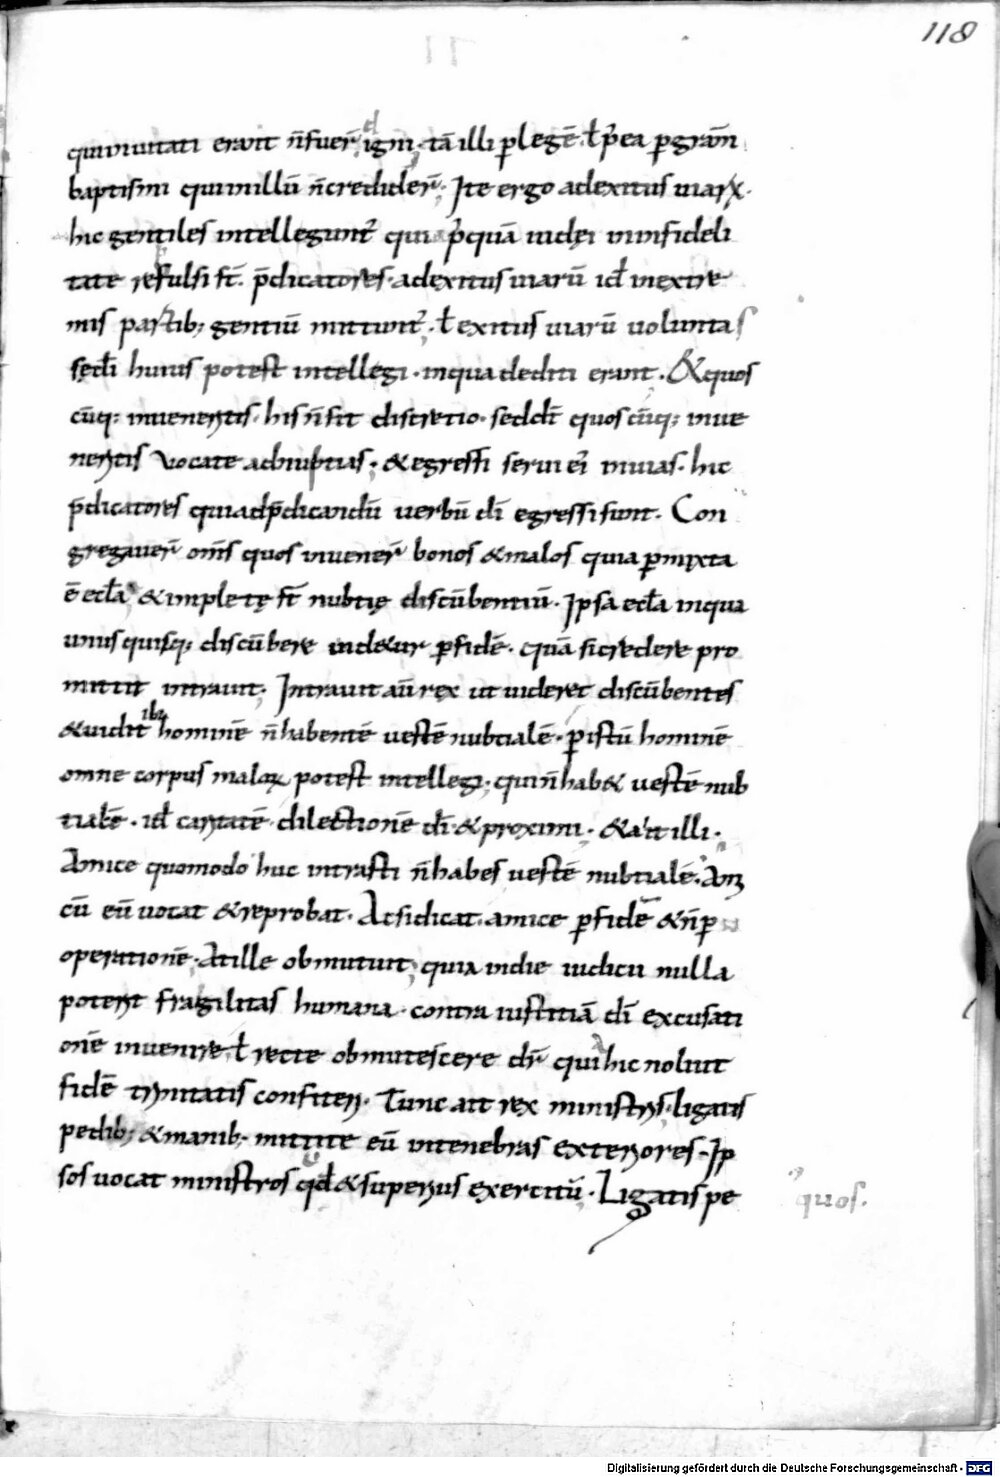 118
quiinuitati erant n̄ fuer̄ igni. tā illi p̱ legē. ł p̄ ea p̱ grām̄
baptismi qui in illū n̄ credider̄. Ite ergo ad exitus uiarꝝ.
hic gentiles intellegunt᷑ qui p̄ quā iudęi in infideli
tate refulsi st̄. p̄dicatores. ad exitus uiarū id̄ in extre
mis partib; gentiū mittunt᷑. ł exitus uiarū uoluntas
sęcłi huius potest intellegi. in qua dediti erant. & quos
cūq; inueneritis. his n̄ fit discretio. sed dt̄ quos cūq; inue
neritis vocate ad nubtias. & egressi serui ei᷑ in uias. hic
p̄dicatores qui ad p̄dicandū uerbū dī egressi sunt. Con
gregauer̄ om̄s quos inuener̄ bonos & malos quia p̱mixta
ē eccła & impletę st̄ nubtię discūbentiū. Ipsa eccła in qua
unus quisq; discūbere uidetur p̱ fidē. quā si credere pro
mittit intrauit. Intrauit aū rex ut uideret discūbentes
& uidit ibi hominē n̄ habentē uestē nubtialē. p̱ istū hominē
omne corpus maloꝝ potest intellegi. qui n̄ hab& uestē nub
tialē. id̄ caritatē dilectionē dī & proximi. & ait illi.
Amice quomodo huc intrasti n̄ habes uestē nubtialē. Am
cū eū uocat & reprobat. Ac si dicat. amice p̱ fidē & n̄ p̱
operationē. At ille obmutuit, quia in die iudicii nulla
poterit fragilitas humana. contra iustitiā dī excusati
onē inuenire. ł recte obmutescere dr̄ qui hic noluit
fidē trinitatis confiteri. Tunc ait rex ministris. ligatis
pedib; & manib; mittite eū in tenebras exteriores. Ip
sos uocat ministros qđ & superius exercitū. Ligatis pe
quos.
Digitalisierung gefördert durch die Deutsche Forschungsgemeinschaft - DFG